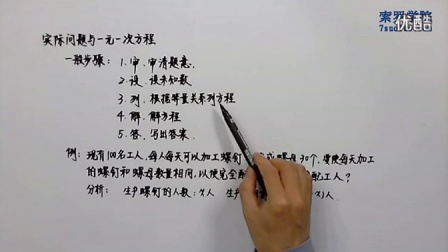 索罗学院
7su
优酷
实际问题与一元一次方程
一般步骤：1. 审、审清题意.
2. 设、设未知数
3. 列、根据等量关系列方程
4. 解、解方程
5. 答、写出答案.
例：现有100名工人，每人每天可以加工螺钉 或螺母30个，要使每天加工
的螺钉和螺母数量相同，以使完全配 配工人？
分析： 生产螺钉的人数：x人 生产 x)人